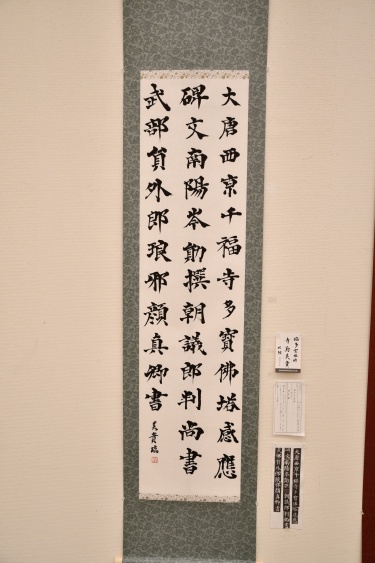 大唐西京千福寺多寶佛塔感應
碑文南陽岑勛撰朝議郎判尚書
武部員外郎琅邪顏真卿書